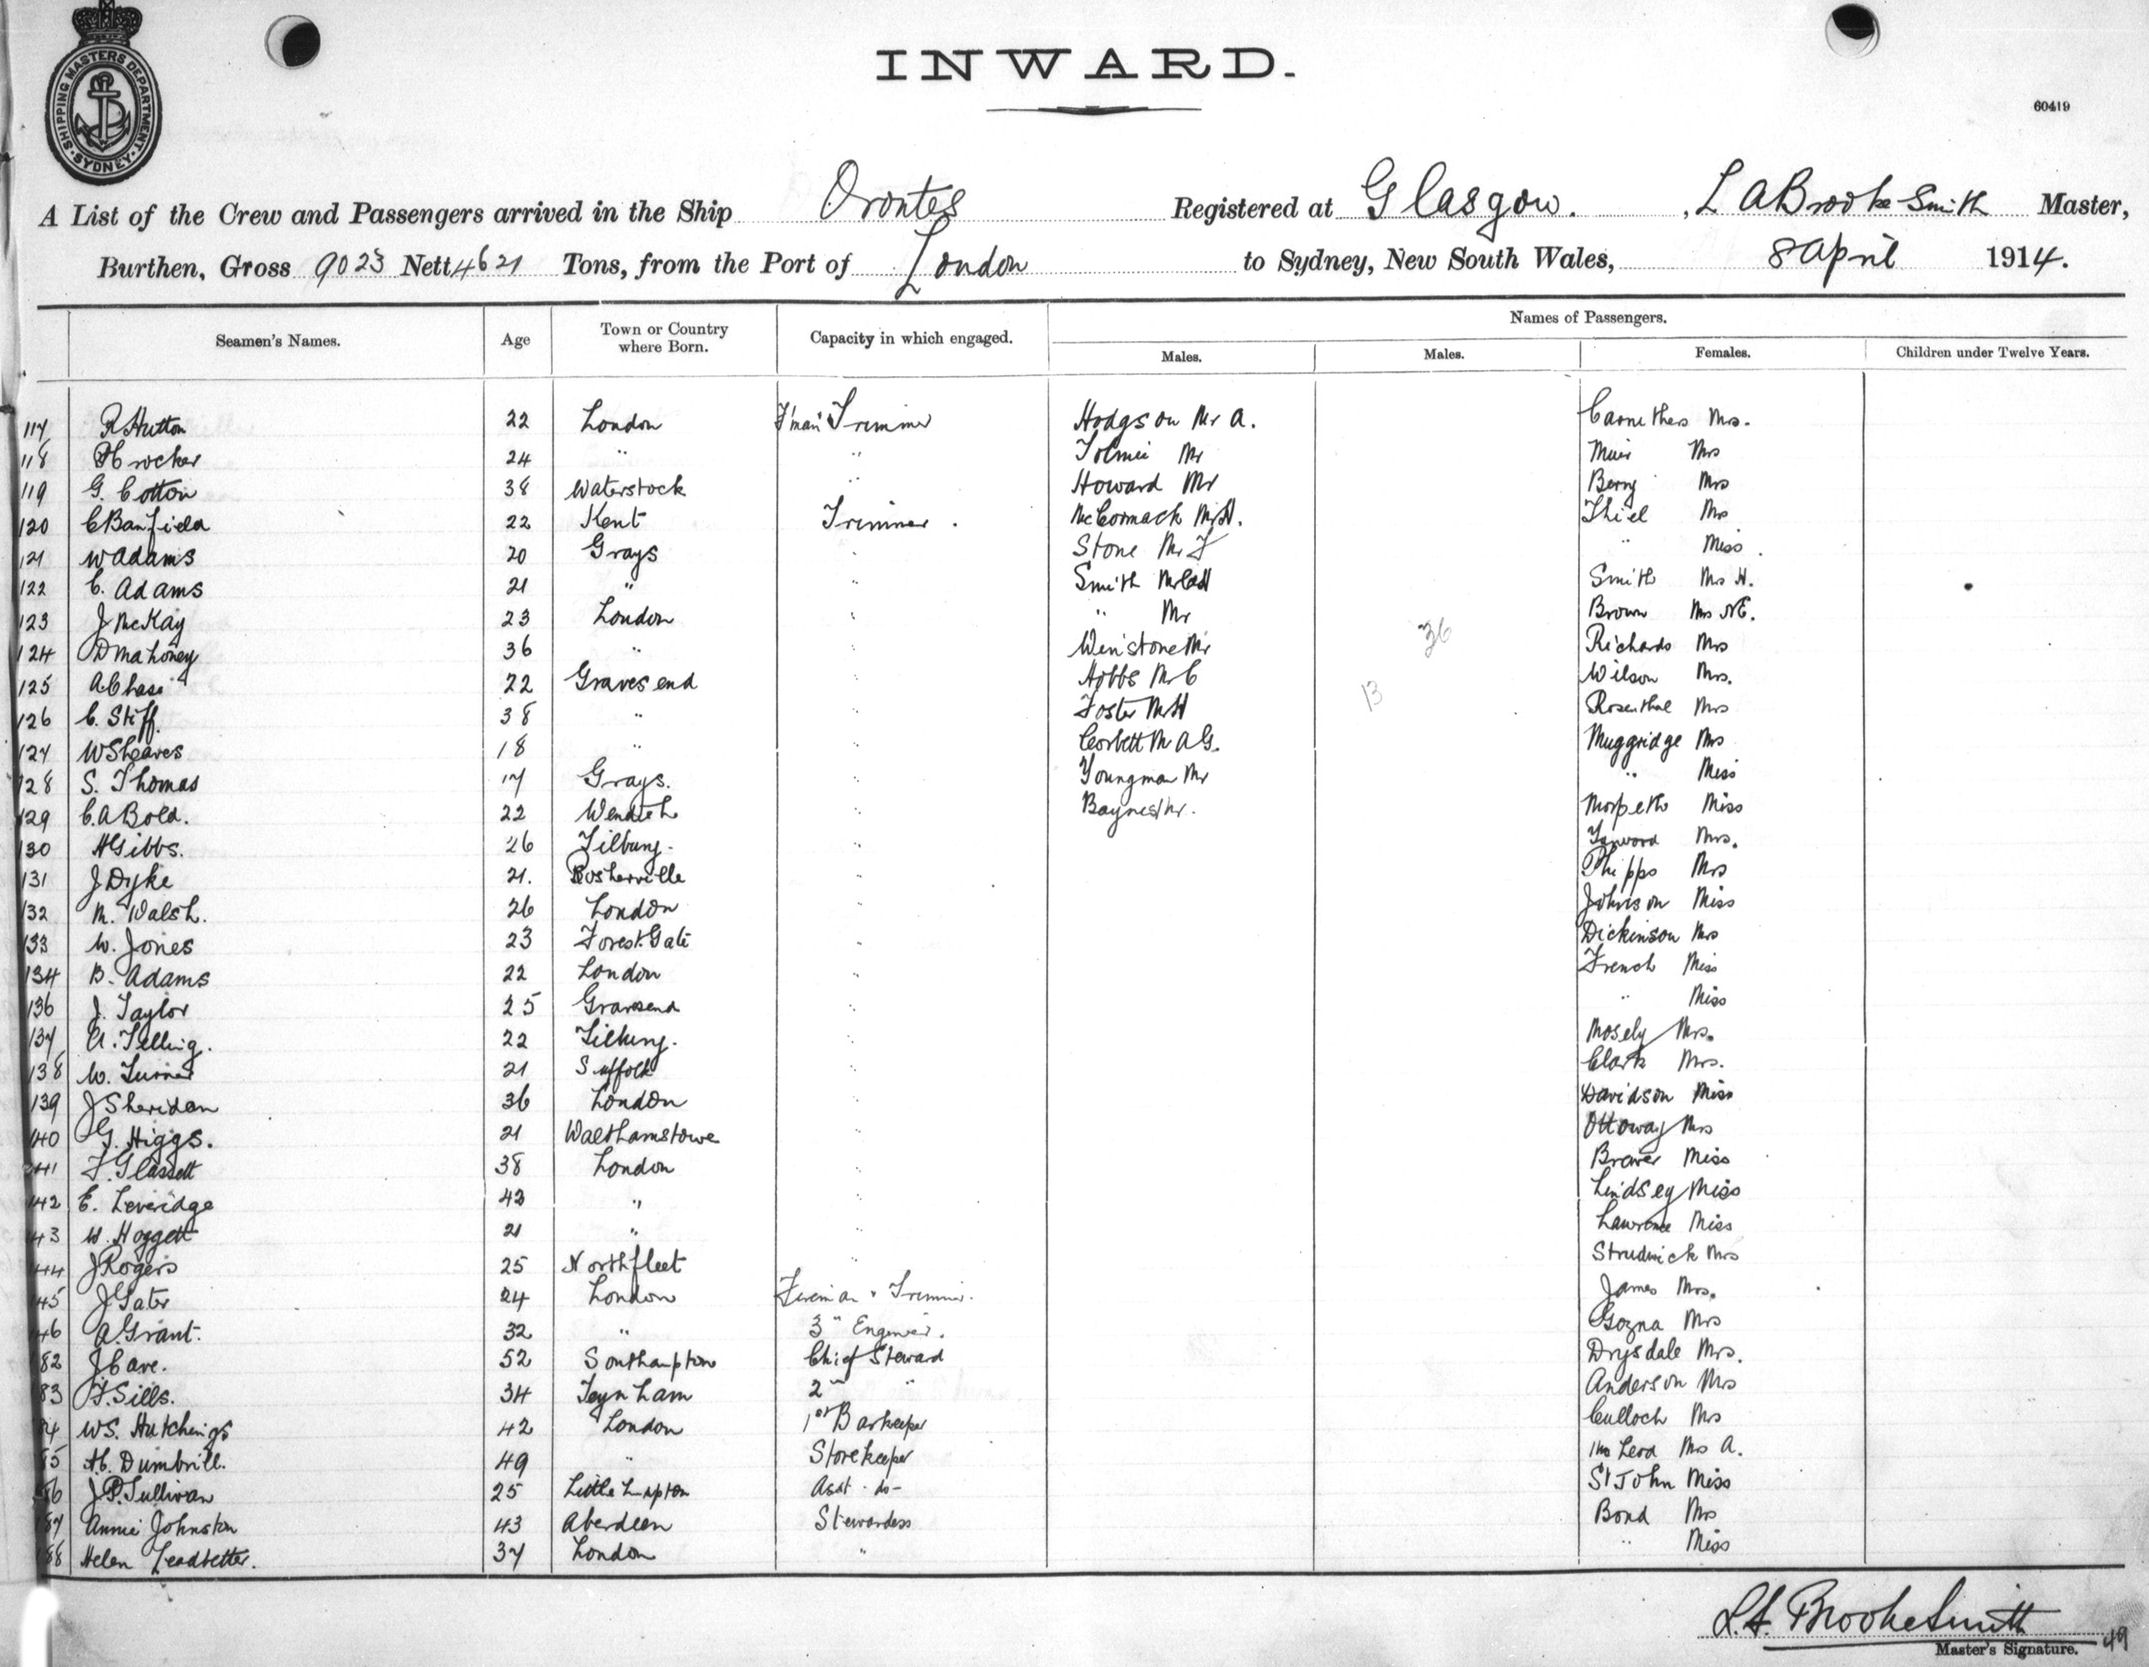 SHIPPING MASTERS DEPARTMENT. SYDNEY.
INWARD.
60419
A List of the Crew and Passengers arrived in the Ship Orontes Registered at Glasgow. , L A Brooke Smith Master,
Burthen, Gross 9023 Nett 4621 Tons, from the Port of London to Sydney, New South Wales, 8 April 1914.
Names of Passengers.
Seamen's Names. Age Town or Country where Born. Capacity in which engaged. Males. Males. Females. Children under Twelve Years.
117 R Hutton 22 London F'man Trimmer Hodgson Mr A. Carruthers Mrs.
118 Crocker 24 " " Tolmie Mr Muir Mrs
119 G. Cotton 38 Waterstock " Howard Mr Berry Mrs
120 C Banfield 22 Kent Trimmer. McCormack Mr Thiel Mrs
121 W Adams 20 Grays " Stone Mr F " Miss.
122 C. Adams 21 " " Smith Mr Smith Mrs H.
123 J McKay 23 London " " Mr Brown Mrs
124 D Mahoney 36 " " Winstone Mr 36 Richards Mrs
125 A Chase 22 Gravesend " Hobbs Mr C 13 Wilson Mrs.
126 C. Stiff. 38 " " Foster Mr H Rosenthal Mrs
127 W Sheaves 18 " " Corbett Mr A G. Muggridge Mrs
128 S. Thomas 17 Grays. " Youngman Mr " Miss
129 C. A Bold. 22 " Baynes Mr. Morpeth Miss
130 H Gibbs. 26 Tilbury. " Mrs.
131 J Dyke 21. Rosherville " Phipps Mrs
132 M. Walsh. 26 London " Johnson Miss
133 W. Jones 23 Forest Gate " Dickinson Mrs
134 B. Adams 22 London " French Miss
136 J. Taylor 25 Gravesend " " Miss
137 A. Telling. 22 Tilbury. " Mosely Mrs.
138 W. Turner 21 Suffolk " Clark Mrs.
139 J Sheridan 36 London " Davidson Miss
140 G. Higgs. 21 Walthamstowe " Ottoway Mrs
141 F. Glassett 38 London " Brewer Miss
142 E. Leveridge 42 " " Lindsey Miss
43 W. Hoggett 21 " " Lawrence Miss
44 J Rogers 25 Northfleet " Strudwick Mrs
45 J Gater 24 London Fireman & Trimmer. James Mrs.
46 A Grant. 32 " 3" Engineer. Gozna Mrs
82 J Cave. 52 Southampton Chief Steward Drysdale Mrs.
83 F. Sills. 34 Teynham 2" " Anderson Mrs
84 W S. Hutchings 42 London 1st Barkeeper Culloch Mrs
85 H. Dumbrill. 49 " Storekeeper McLeod Mrs A.
86 J. P. Sullivan 25 Little Hampton Asst. do- St John Miss
87 Annie Johnston 43 Aberdeen Stewardess Bond Mrs
88 Helen Leadbetter. 37 London " " Miss
L. A. Brooke Smith
Master's Signature. 49